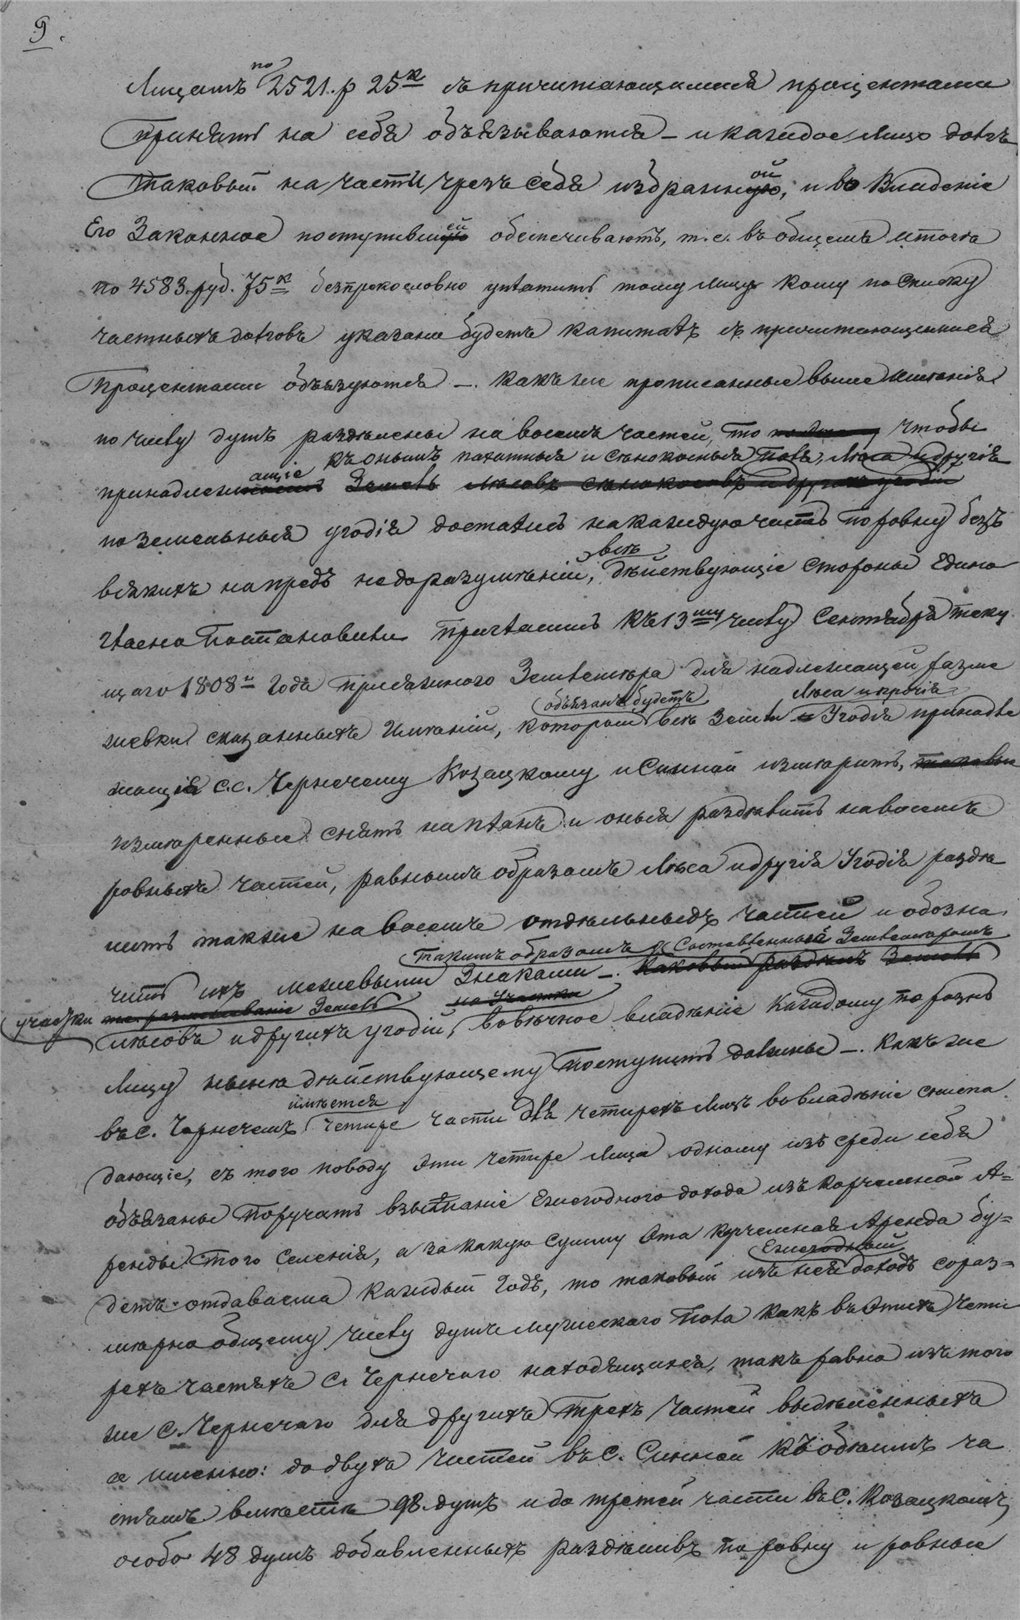 9.
Лицамъ по 2521. р 25к съ причитающимися процентами
принять на себя объязываются – и каждое лицо долгъ
таковый на части чрезъ себя избранной, и во Владеніе
Его Законное поступившей обеспечиваютъ, т. е. въ общемъ итоге
по 4583. руб. 75к безпрекословно уплатить тому лицу кому по списку
частныхъ долговъ указано будетъ капиталъ съ причитающимися
процентами объязуются –. какъ же прописанные выше имения
по числу душъ разделены на восемь частей, то чтобы
къ онымъ пахатныя и сенокосныя поля, Леса и другiя
принадлежащiе Земель лесовъ сенокосовъ и другихъ угодiй
поземельныя угодiя достались на каждую часть поровну безъ
всякихъ напредь недоразуменiй, все действующiе стороны Едино
гласно Постановили пригласить къ 13му числу Сентября теку
щаго 1808го Года присяжного Землемера для надлежащей разме
объязанъ будетъ Леса и прочiя
жевки сказанныхъ именiй, которой все Земли и Угодiе принадле
жащiя с.с. Чернечому Козацкому и Синной измерить,
измеренные снять на планъ и оныя разделить на восемъ
ровныхъ частей, равнымъ образомъ Леса и другiя Угодiя разде
лить также на восемъ отдельныхъ частей и обозна
такимъ образомъ составленный Землемеромъ
чить ихъ межевыми Знаками –. каковый разделъ Земель
участки Земель на участки
лесовъ и другихъ угодiй, вовечное владенiе Каждому по разнь
Лицу ныне действующему поступить должны –. Какъ же
имеется
въ с. Чернечемъ четыре части для четырехъ лицъ во владенiе
дающiе, съ того поводу Эти четыре лица одному изъ среди себя
объязаны поручать взысканiе Ежегодного дохода изъ корчемной А=
ренды того селенiя, а за какую сумму Эта корчемная Аренда бу=
Ежегодный
детъ отдаваема каждый Годъ, то таковый изъ нея доходъ сораз=
мерно общему числу душъ мужескаго пола какъ въ Этихъ Четы
рехъ частяхъ С. Чернечого находящихся, такъ равно изъ того
же С. Чернечаго для другихъ трехъ частей выделенныхъ
а именно: до двухъ частей въ С. Синной къ обеимъ ча
стямъ вместе 98 душъ и до третей части въ С. Козацкомъ,
особо 48 душъ добавленныхъ разделивъ по ровну и ровные